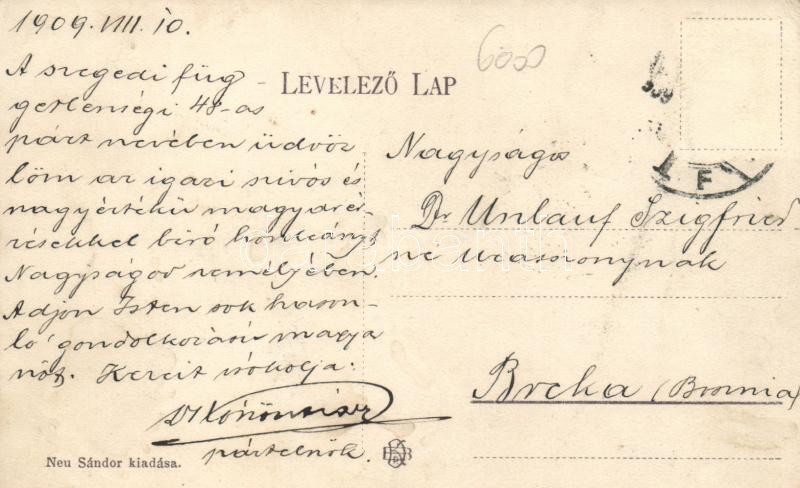 1909. VIII. 10.
A szegedi füg
getlenségi 48-as
párt nevében üdvöz
löm az igazi szívós és
nagyértékü magyar ér-
zésekkel biró honleányt
Nagyságod személyében.
Adjon Isten sok hason-
ló gondolkozásu magya
nőt. Kezeit csókolja:
Dr
pártelnök.
Neu Sándor kiadása.
LEVELEZŐ LAP
6000
Nagyságos
Dr Unlauf Szigfried
ne urasszonynak
Brcka (Bosnia)
F